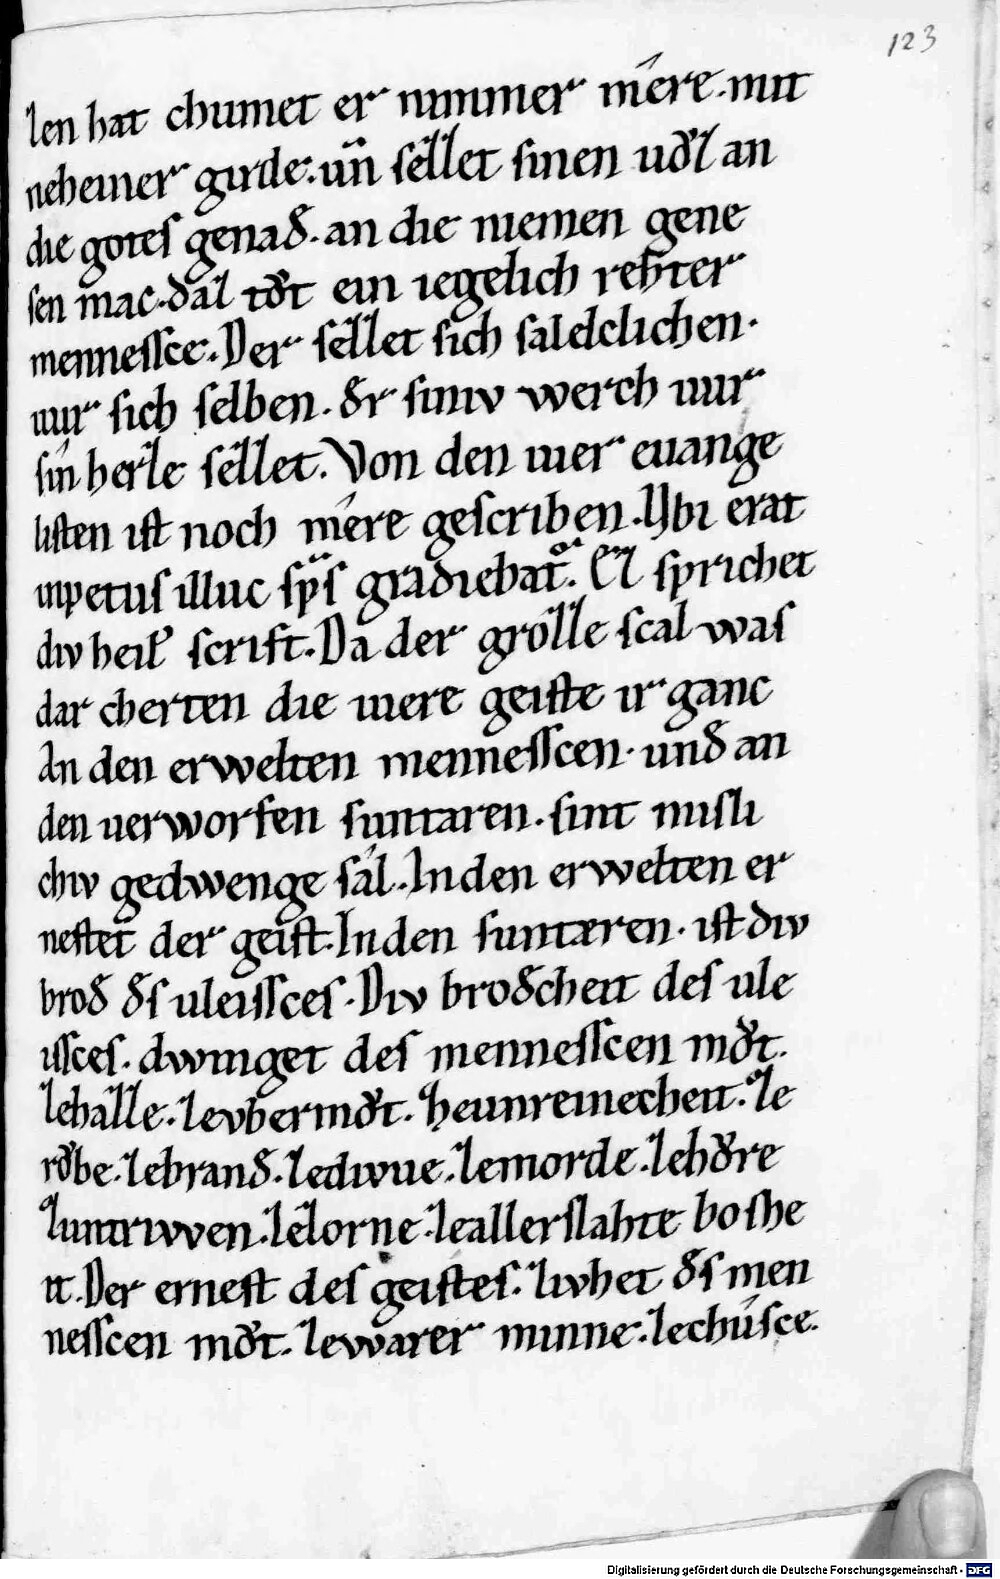 123
len hat chumet er nimmer mêre. mit
neheiner girde. uñ sellet sinen uͦdl an
die gotes genad. an die niemen gene
sen mac. dal tuͦt ein iegelich rehter
mennessce. Der sellet sich saldclichen.
uur sich selben. der siniv werch uur
sin herle sellet. Von den uier euange
listen ist noch mêre gescriben. Vbi erat
inpetus illuc sp̄s gradiebat᷑. El sprichet
div heil' scrift. Da der grolle scal was
dar cherten die uiere geiste ir ganc
An den erwelten mennesscen. und an
den uerworfen suntaren. sint misli
chiv gedwenge sâl. In den erwelten er
nestet der geist. In den suntæren. ist div
brod des uleissces. Div brodcheit des ule
issces. dwinget des mennesscen muͦt.
lehalle. levbermuͦt. leunreinecheit. le
ruͦbe. lebrand. lediwue. lemorde. lehuͦre
luntriwen. lelorne. leallerslahte boshe
it. Der ernest des geistes. livhet des men
nesscen muͦt. lewarer minne. lechusce.
Digitalisierung gefördert durch die Deutsche Forschungsgemeinschaft - DFG